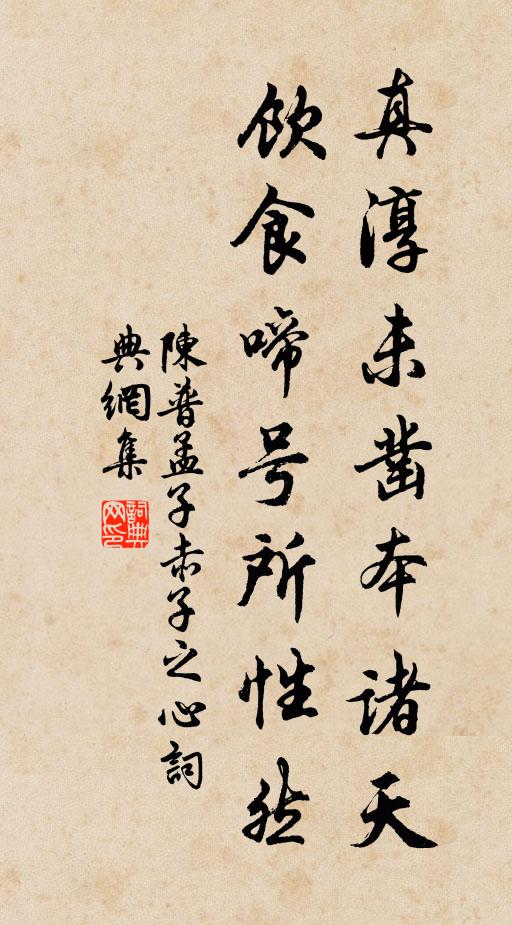 真淳未凿本诸天
饮食啼号所性然
陳普孟子赤子之心詞
典網集
詞典
网印